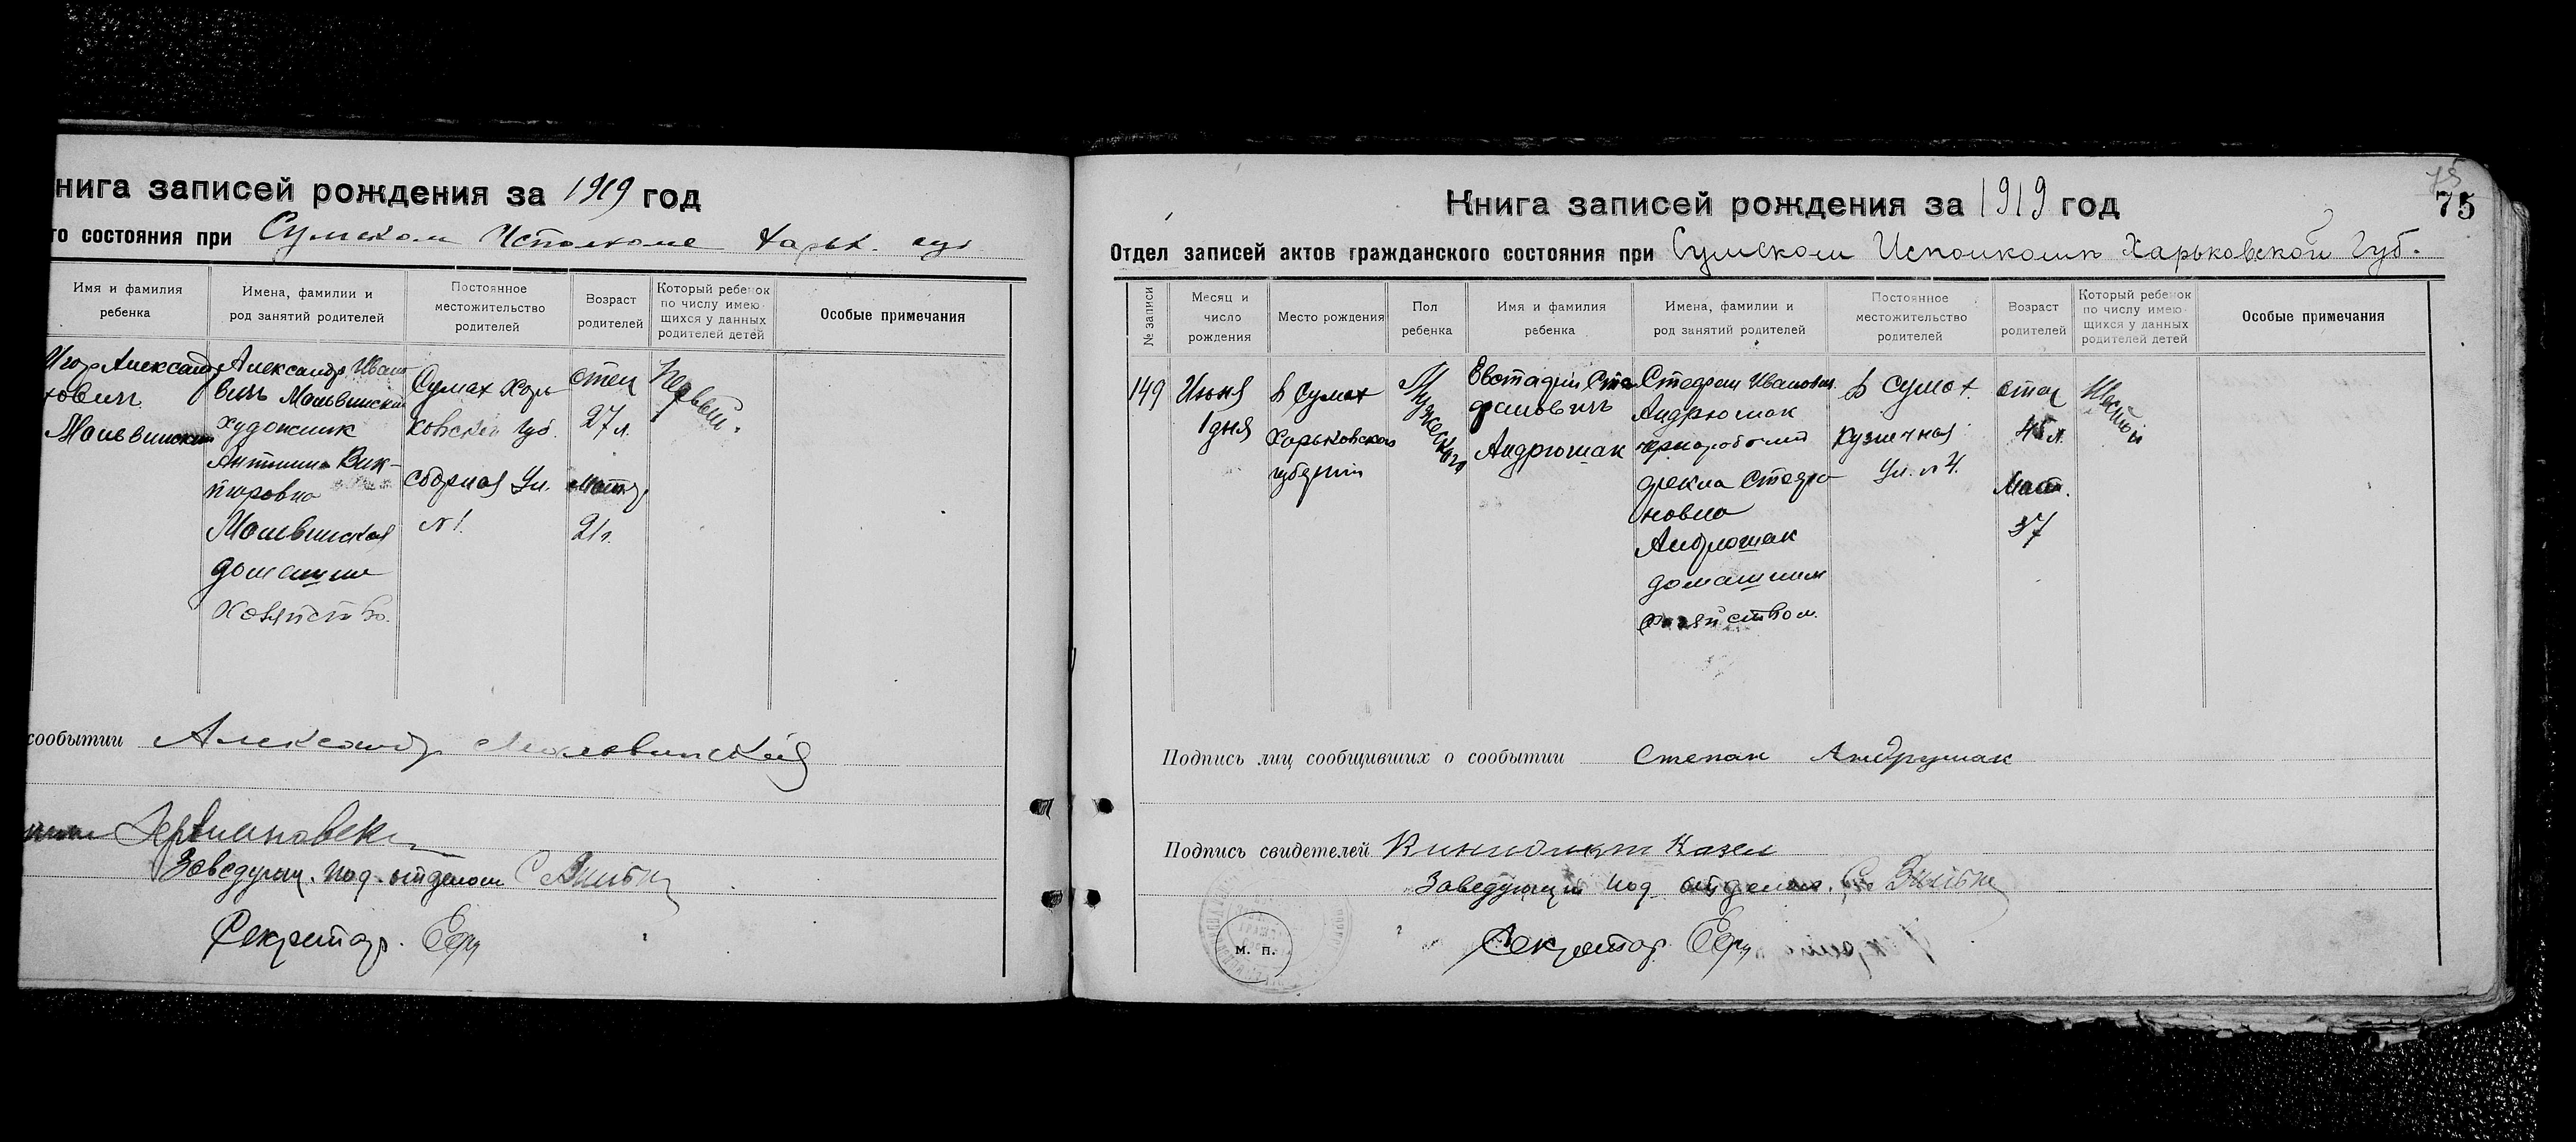 нига записей рождения за 1919 год
го состояния при Сумском Исполкоме Харьк. губ
Имя и фамилия
ребенка
Имена, фамилии и
род занятий родителей
Постоянное
местожительство
родителей
Возраст
родителей
Который ребенок
по числу имею-
щихся у данных
родителей детей
Особые примечания
Игорь Александ
ович
Александр Ивано
вичъ
художник
Антонина Вик-
торовна
домашнее
хозяйство.
Сумах Харь
ковской губ.
Сборная Ул.
№ 1.
отец
27 л.
мать
21 г.
Первый.
сообытии Александр
Заведующ. под-отделом
Секретар.
75
Книга записей рождения за 1919 год
75
Отдел записей актов гражданского состояния при Сумском Исполкоми Харьковской Губ.
№ записи
Месяц и
число
рождения
Место рождения
Пол
ребенка
Имя и фамилия
ребенка
Имена, фамилии и
род занятий родителей
Постоянное
местожительство
родителей
Возраст
родителей
Который ребенок
по числу имею-
щихся у данных
родителей детей
Особые примечания
149
Июня
1 дня
в Сумах
Харьковской
губернии
Мужского
Евстафий Сте
фановичъ
Андрюшак
Стефан Иванович
Андрюшак
чернорабочий
Фекла Стефа
новна
Андрюшак
домашним
хозяйством.
в Сумах.
Кузнечная
Ул. № 4.
отец
45 л.
Мать.
37
Шестой
Подпись лиц сообщивших о сообытии Степан Андрушак
Подпись свидетелей
Заведующий под отделом.
м. п.
Секретар.